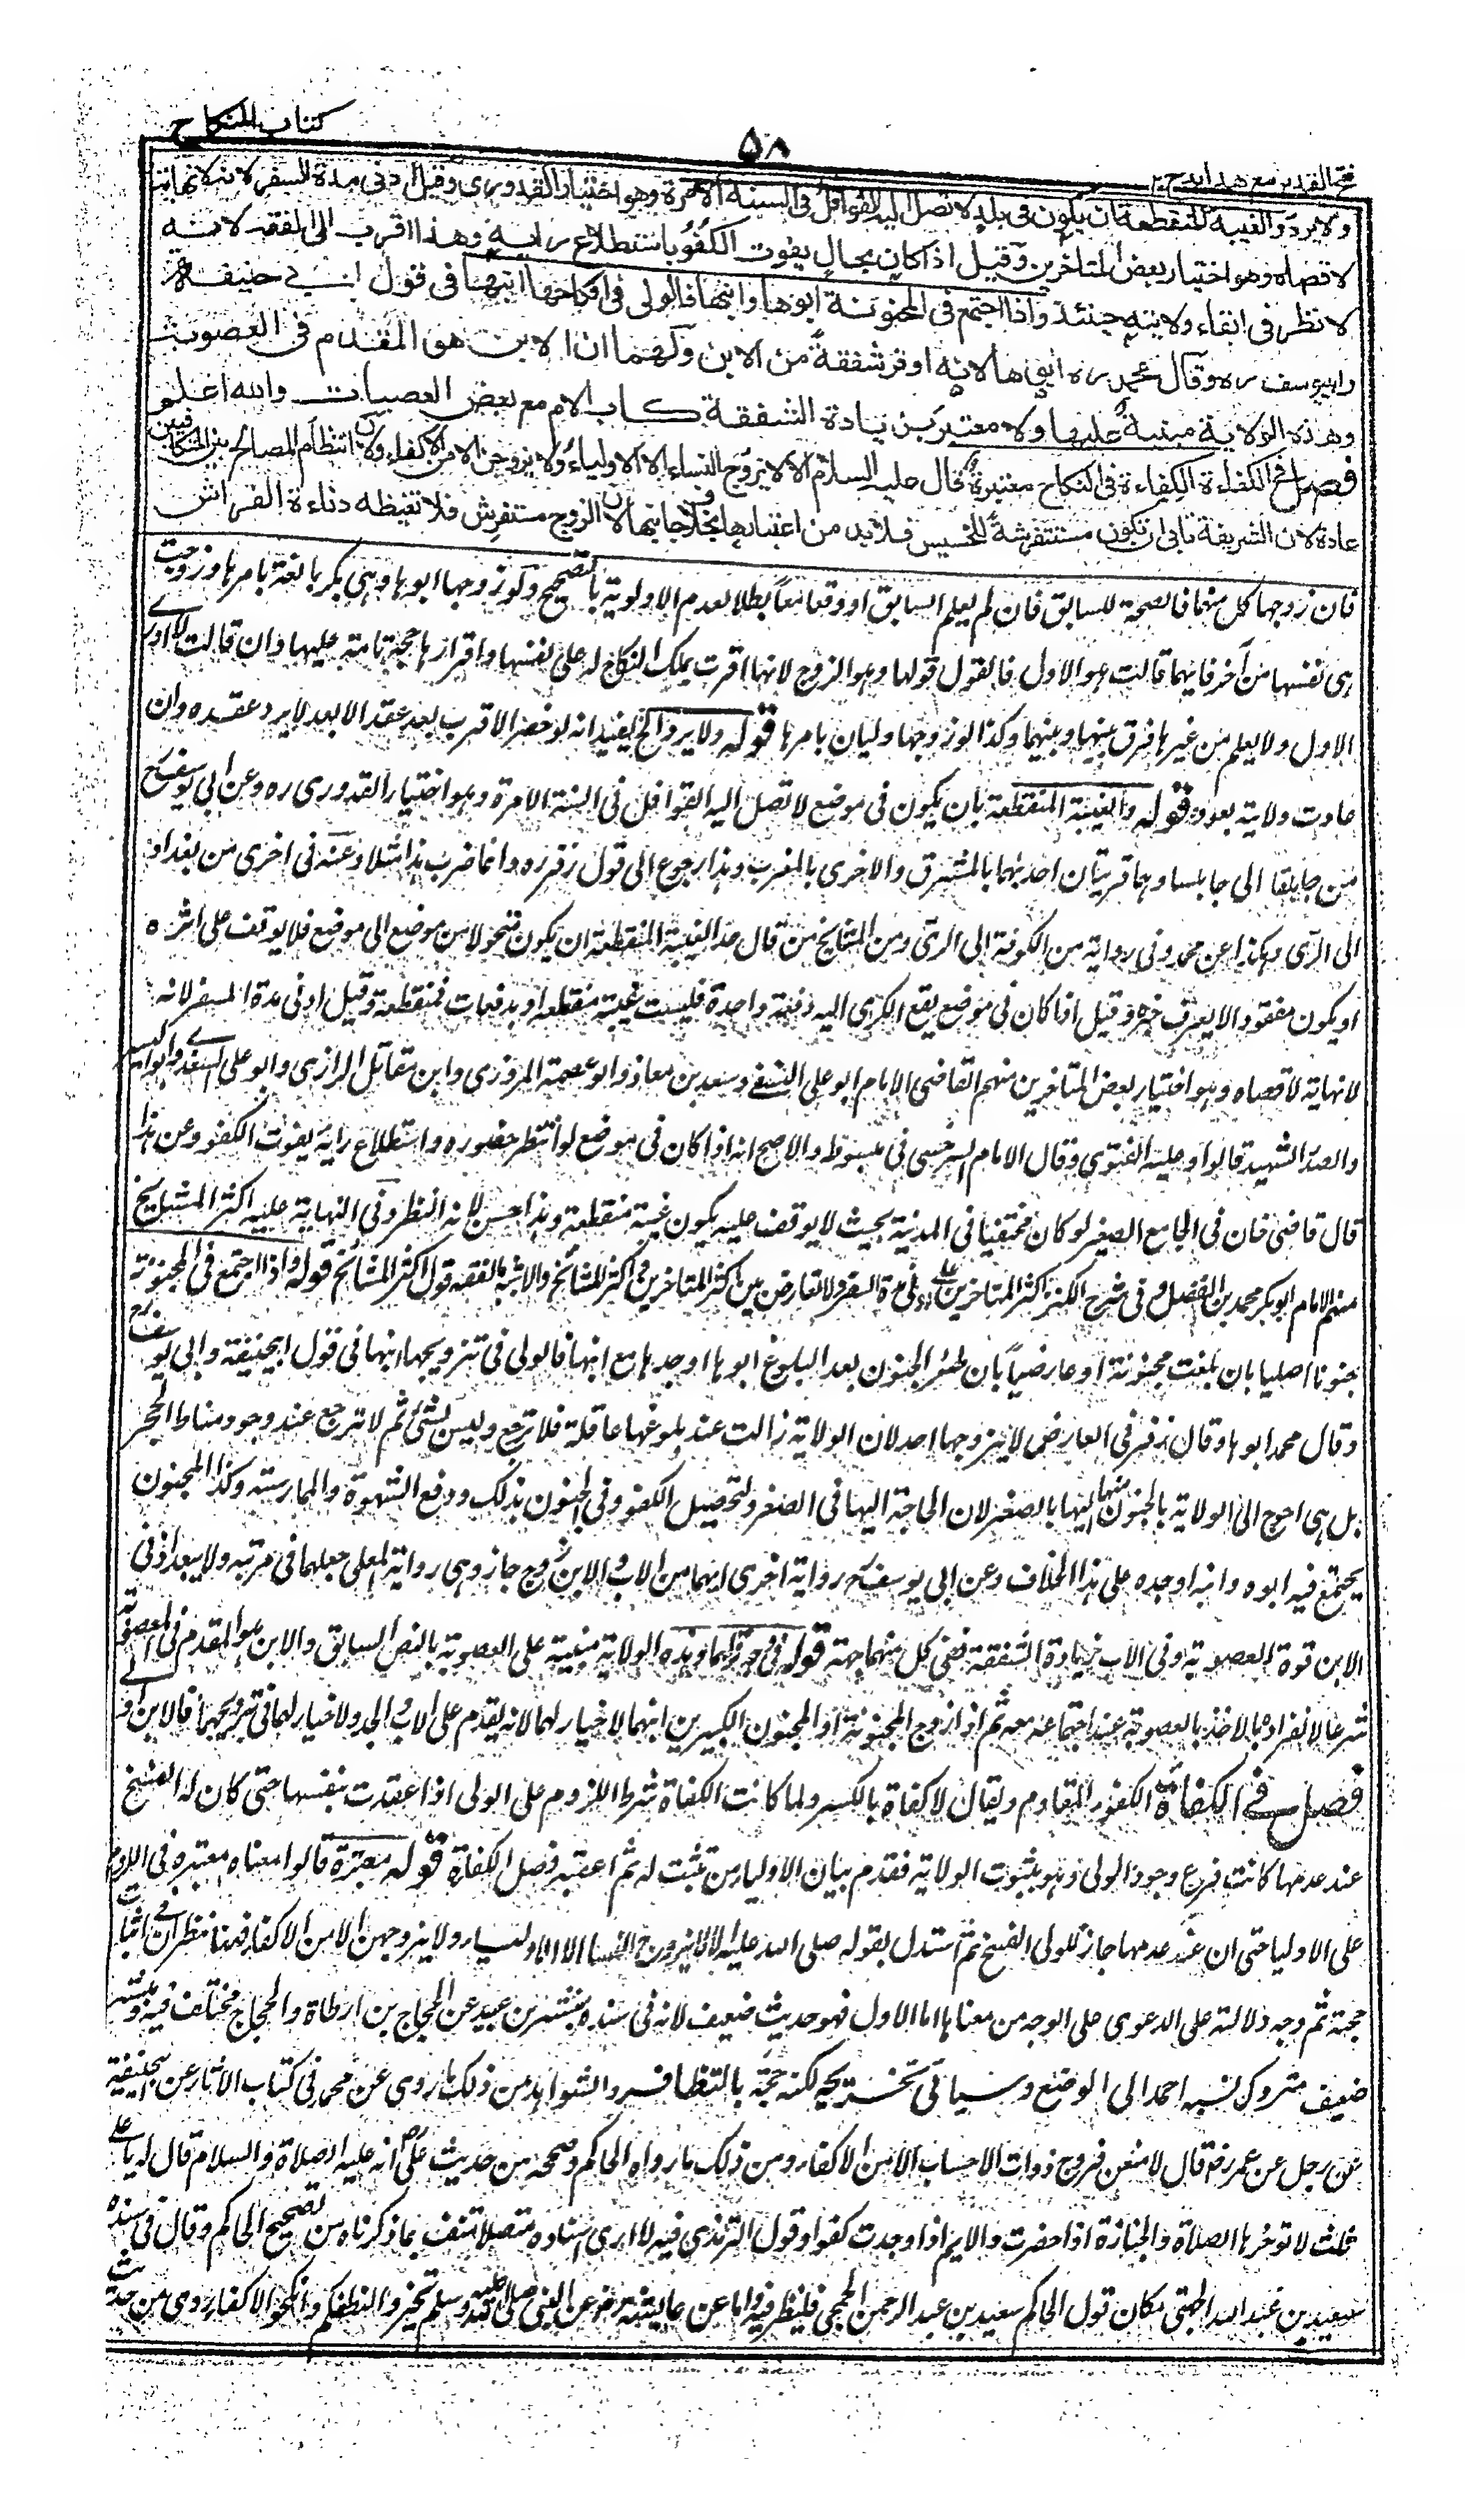 كتاب النكاح
٥٨
فتح القدير مع هداية ج ٢
ولا يرد والغيبة المنقطعة ان يكون في بلد لا تصل اليه القوافل في السنة الا مرة وهو اختيار القدوري وقيل ادنى مدة السفر لانه لا نهاية
لاقصاه وهو اختيار بعض المتاخرين وقيل اذا كان بحال يفوت الكفؤ باستطلاع رايه وهذا اقرب الى الفقه لانه
لا نظر في ابقاء ولايته حينئذ واذا اجتمع في المجنونة ابوها وابنها فالولى في انكاحها ابنها في قول ابي حنيفة رح
وابي يوسف ره وقال محمد ره ابوها لانه اوفر شفقة من الابن ولهما ان الابن هو المقدم في العصوبة
وهذه الولاية مبنية عليها ولا معتبر بزيادة الشفقة كاب الام مع بعض العصبات والله اعلم
فصل في الكفاءة الكفاءة في النكاح معتبرة قال عليه السلام الا لا يزوج النساء الا الاولياء ولا يزوجن الا من الاكفاء ولان انتظام المصالح بين المتكافيين
عادة لان الشريفة تابى ان تكون مستفرشة للخسيس فلا بد من اعتبارها بخلاف جانبها لان الزوج مستفرش فلا تغيظه دناءة الفراش
فان زوجها كل منهما فالصحة للسابق فان لم يعلم السابق او وقعا معا بطلا لعدم الاولوية بالتصحيح ولو زوجها ابوها وهى بكر بالغة بامرها وزوجت
هى نفسها من آخر فايهما قالت هو الاول فالقول قولها وهو الزوج لانها اقرت بملك النكاح له على نفسها واقرارها حجة تامة عليها وان قالت لا ادرى
الاول ولا يعلم من غيرها فرق بينها وبينهما وكذا لو زوجها وليان بامرها قوله ولا يرد الخ يفيد انه لو حضر الاقرب بعد عقد الابعد لا يرد عقده وان
عادت ولاية بعوده قوله والغيبة المنقطعة بان يكون في موضع لا تصل اليه القوافل في السنة الا مرة وهو اختيار القدورى ره وعن ابي يوسف رح
من جابلقا الى جابلسا وهما قريتان احدهما بالمشرق والاخرى بالمغرب وهذا رجوع الى قول زفر ره وانما ضرب هذا مثلا وعنه في اخرى من بغداد
الى الرى وهكذا عن محمد وفى رواية من الكوفة الى الرى ومن المشايخ من قال حد الغيبة المنقطعة ان يكون متحولا من موضع الى موضع فلا يوقف على اثره
او يكون مفقودا لا يعرف خبره وقيل اذا كان في موضع يقع الكرى اليه دفعة واحدة فليست غيبة منقطعة او بدفعات فمنقطعة وقيل ادنى مدة السفر لانه
لا نهاية لاقصاه وهو اختيار بعض المتاخرين منهم القاضى الامام ابو على النسفى وسعد بن معاذ وابو عصمة المروزى وابن مقاتل الرازى وابو على السغدى وابو اليسر
والصدر الشهيد قالوا وعليه الفتوى وقال الامام السرخسى في مبسوطه والاصح انه اذا كان في موضع لو انتظر حضوره واستطلاع رايه يفوت الكفو وعن هذا
قال قاضى خان في الجامع الصغير لو كان مختفيا في المدينة بحيث لا يوقف عليه يكون غيبة منقطعة وهذا حسن لانه النظر وفى النهاية عليه اكثر المشايخ
منهم الامام ابو بكر محمد بن الفضل وفى شرح الكنز اكثر المتاخرين على ادنى مدة السفر ولا تعارض بين اكثر المتاخرين واكثر المشائخ والاشبه بالفقه قول اكثر المشائخ قوله واذا اجتمع في المجنونة
جنونا اصليا بان بلغت مجنونة او عارضيا بان طرء الجنون بعد البلوغ ابوها او جدها مع ابنها فالولى في تزويجها ابنها في قول ابيحنيفة وابى يوسف رح
وقال محمد ابوها وقال زفر في العارض لا يزوجها احد لان الولاية زالت عند بلوغها عاقلة فلا ترجع وليس بشئ ثم لا ترجع عند وجود مناط الحجر
بل هى احوج الى الولاية بالجنون منها اليها بالصغر لان الحاجة اليها في الصغر لتحصيل الكفو وفى الجنون بذلك ودفع الشهوة والممارسة وكذا المجنون
يجتمع فيه ابوه وابنه او جده على هذا الخلاف وعن ابى يوسف رح رواية اخرى ايهما من الاب والابن زوج جاز وهى رواية المعلى جعلهما في مرتبة ولا يبعد اذ في
الابن قوة العصوبة وفى الاب زيادة الشفقة ففى كل منهما جهة قوله وفى وجه لهما وهذه الولاية مبنية على العصوبة بالنص السابق والابن هو المقدم في العصوبة
شرعا لانفراده بالاخذ بالعصوبة عند اجتماعه معه ثم اذا زوج المجنونة او المجنون الكبيرين ابنهما لا خيار لهما لانه يقدم على الاب والجد ولا خيار لهما في تزويجهما فالابن اولى
فصل في الكفاءة الكفو المقاوم ويقال لا كفاة بالكسر ولما كانت الكفاة شرط اللزوم على الولى اذا عقدت بنفسها حتى كان له الفسخ
عند عدمها كانت فرع وجود الولى وهو بثبوت الولاية فقدم بيان الاولياء من تثبت له ثم اعقبه فصل الكفاة قوله معتبرة قالوا معناه معتبرة في اللزوم
على الاوليا حتى ان عند عدمها جاز للولى الفسخ ثم استدل بقوله صلى الله عليه الا لا يزوج النسا الا الاوليا ولا يزوجهن الا من الاكفا فهنا نظران في اثبات
حجة ثم وجه دلالته على الدعوى على الوجه من معناها اما الاول فهو حديث ضعيف لانه في سنده مبشر بن عبيد عن الحجاج بن ارطاة والحجاج مختلف فيه ومبشر
ضعيف متروك نسبه احمد الى الوضع وسياتى تخريجه لكنه حجة بالتظافر والشواهد من ذلك ما روى عن محمد في كتاب الاثار عن ابيحنيفة
عن رجل عن عمر رض قال لامنعن فروج ذوات الاحساب الا من الاكفاء ومن ذلك ما رواه الحاكم وصححه من حديث على رض انه عليه الصلاة والسلام قال له يا على
ثلث لا تؤخرها الصلاة والجنازة اذا حضرت والايم اذا وجدت كفوا وقول الترمذى فيه لا ارى اسناده متصلا منتف بما ذكرناه من تصحيح الحاكم وقال في سنده
سعيد بن عبد الله الجهنى مكان قول الحاكم سعيد بن عبد الرحمن الجمحى فلينظر فيه واما عن عايشة رض عن النبى صلى الله عليه وسلم تخيروا لنطفكم وانكحوا الاكفاء روى من حديث